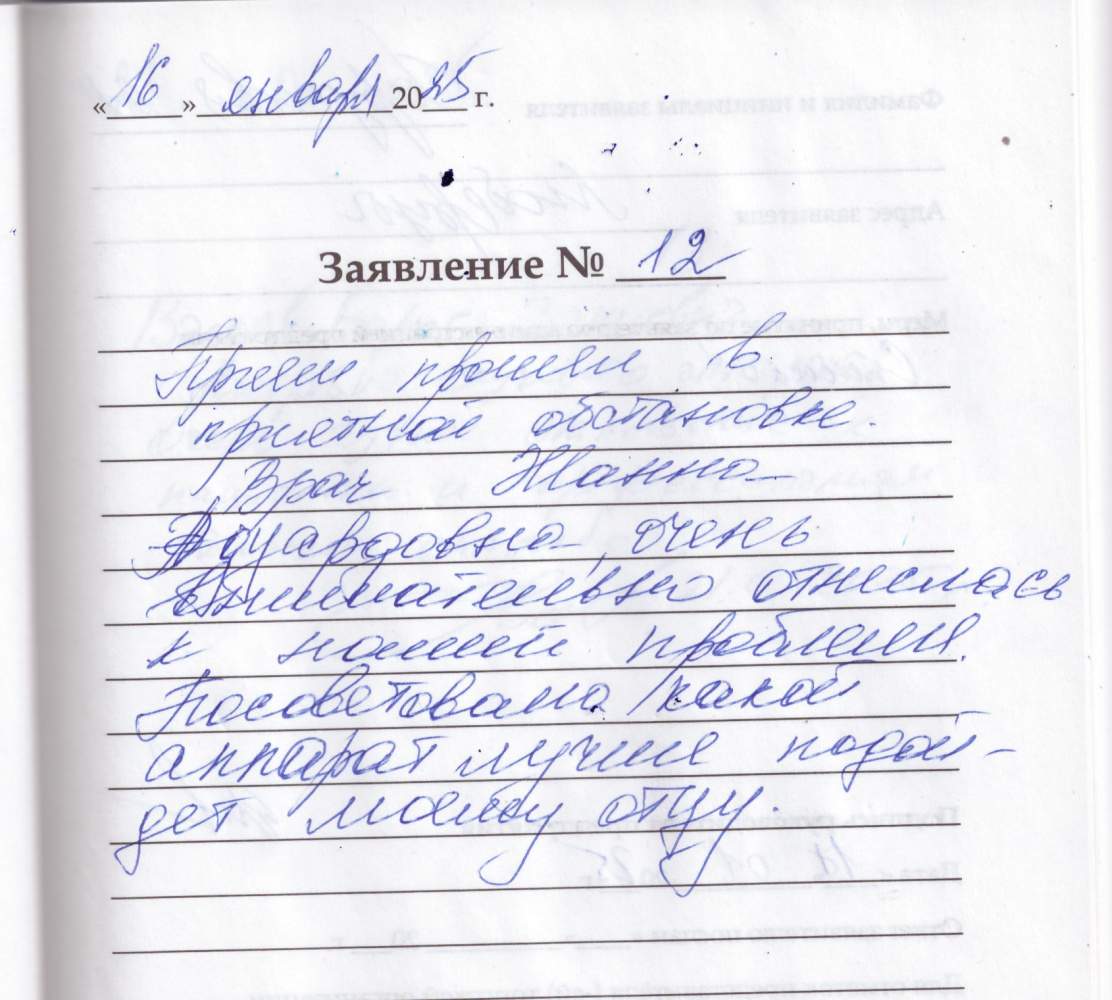 «16» января 2025 г.
Заявление № 12
Прием прошел в
приятной обстановке.
Врач Жанна
Эдуардовна, очень
внимательно отнеслась
к нашей проблеме.
Посоветовала какой
аппарат лучше подой-
дет моему отцу.